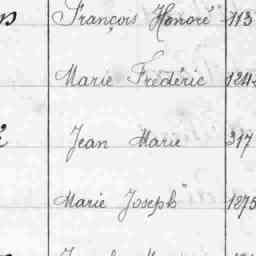 François Honoré 113
Marie Frédéric
Jean Marie 317
Marie Joseph 1875